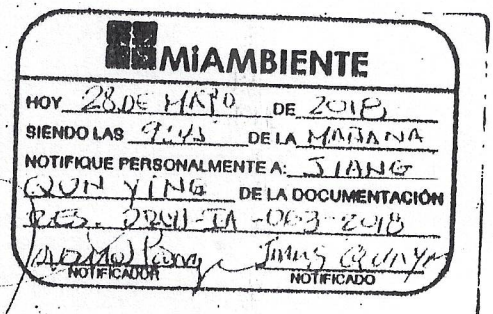 MiAMBIENTE
HOY 28 DE MAYO DE 2018
SIENDO LAS 9:45 DE LA MAÑANA
NOTIFIQUE PERSONALMENTE A: JIANG
QUN YING DE LA DOCUMENTACIÓN
RES. DRCH-IA-063-2018
NOTIFICADOR NOTIFICADO